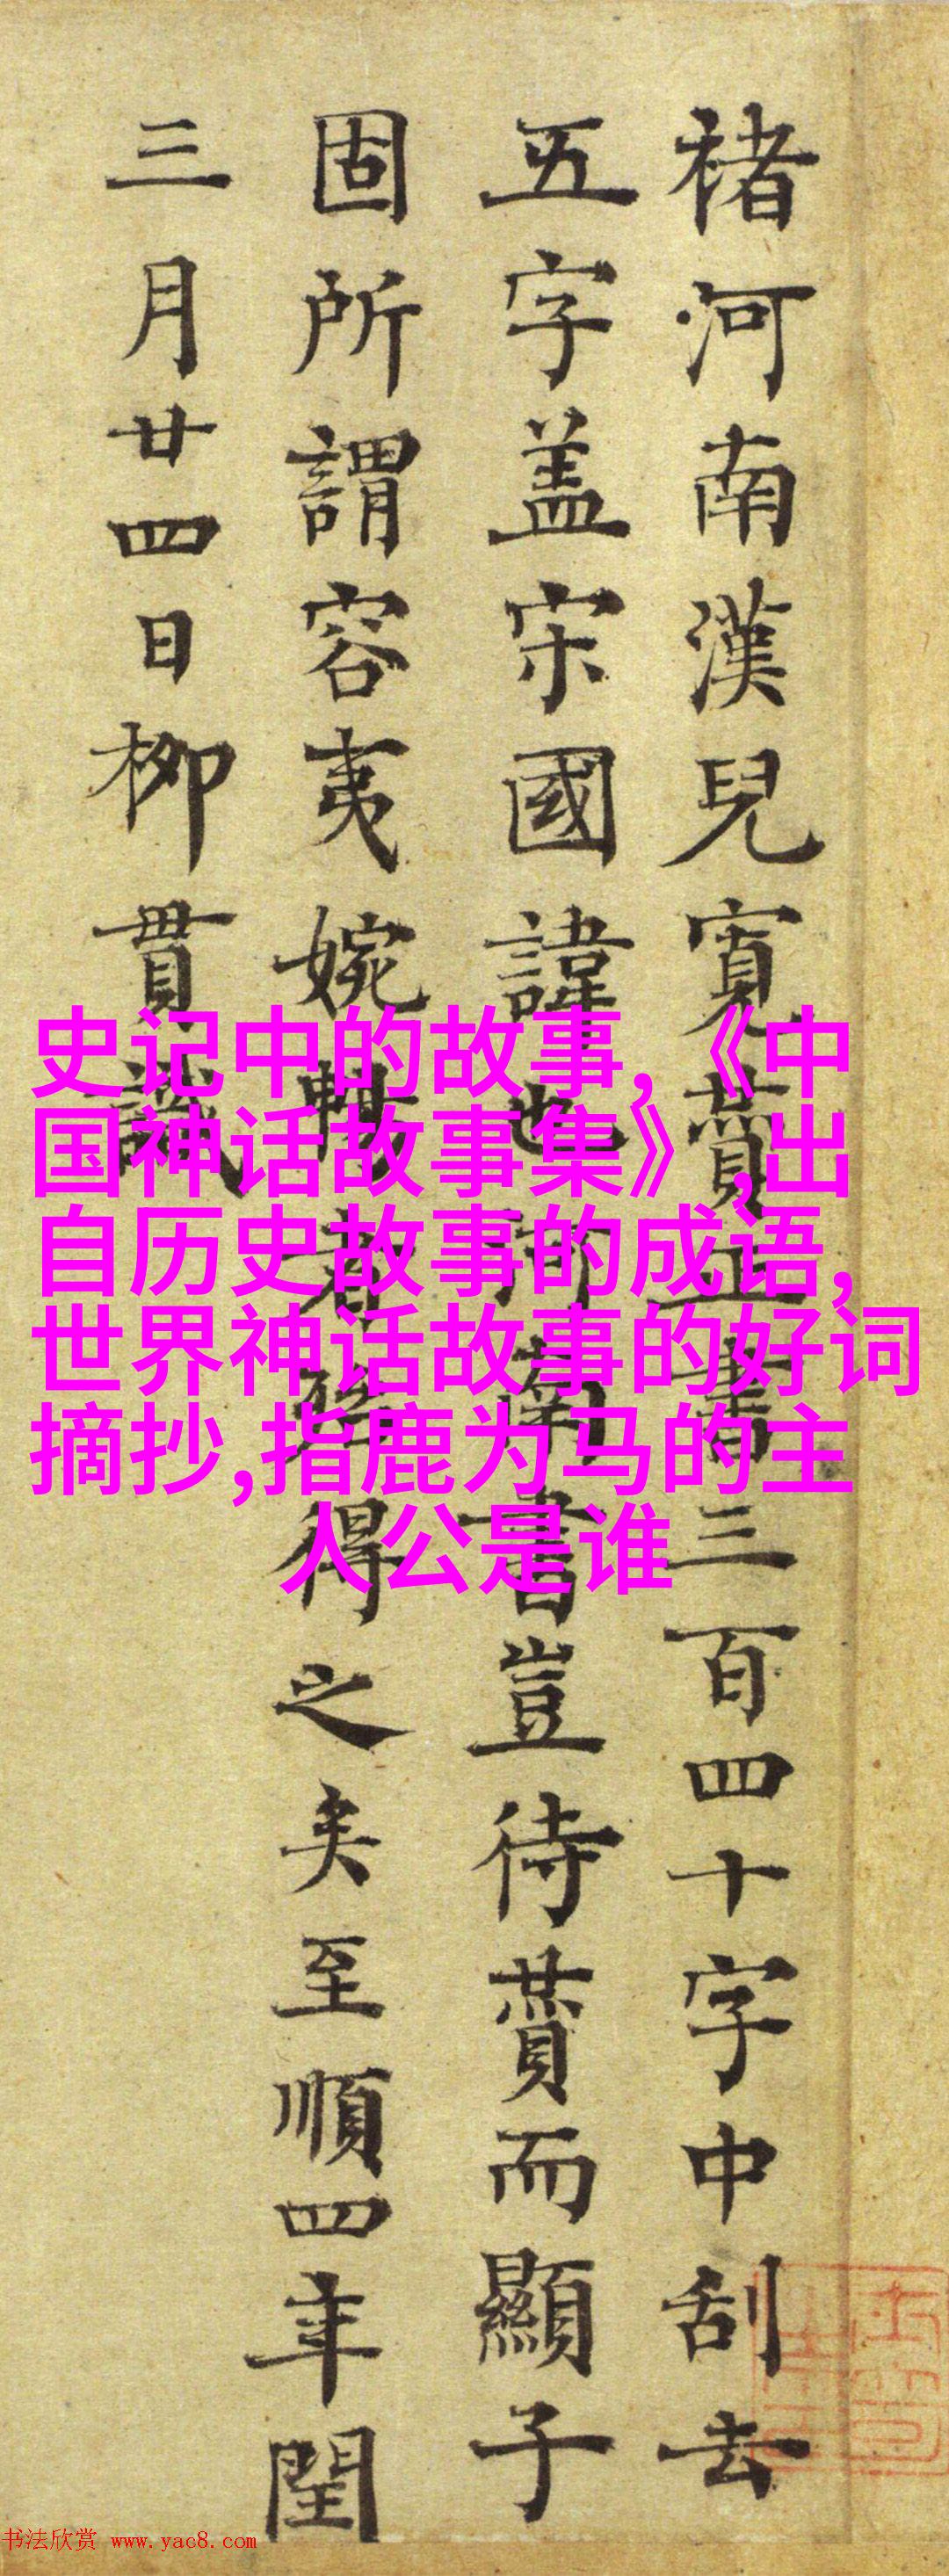 褚河南漢兒寬賛正書三百四十字中刮去
五字盖宋國諱也河南書豈待賛而顯子
固所謂容夷婉暢者得之矣至順四年閏
三月廿四日柳貫識
史记中的故事,《中
国神话故事集》,出
自历史故事的成语,
世界神话故事的好词
摘抄,指鹿为马的主
人公是谁
书法欣赏 www.yac8.com